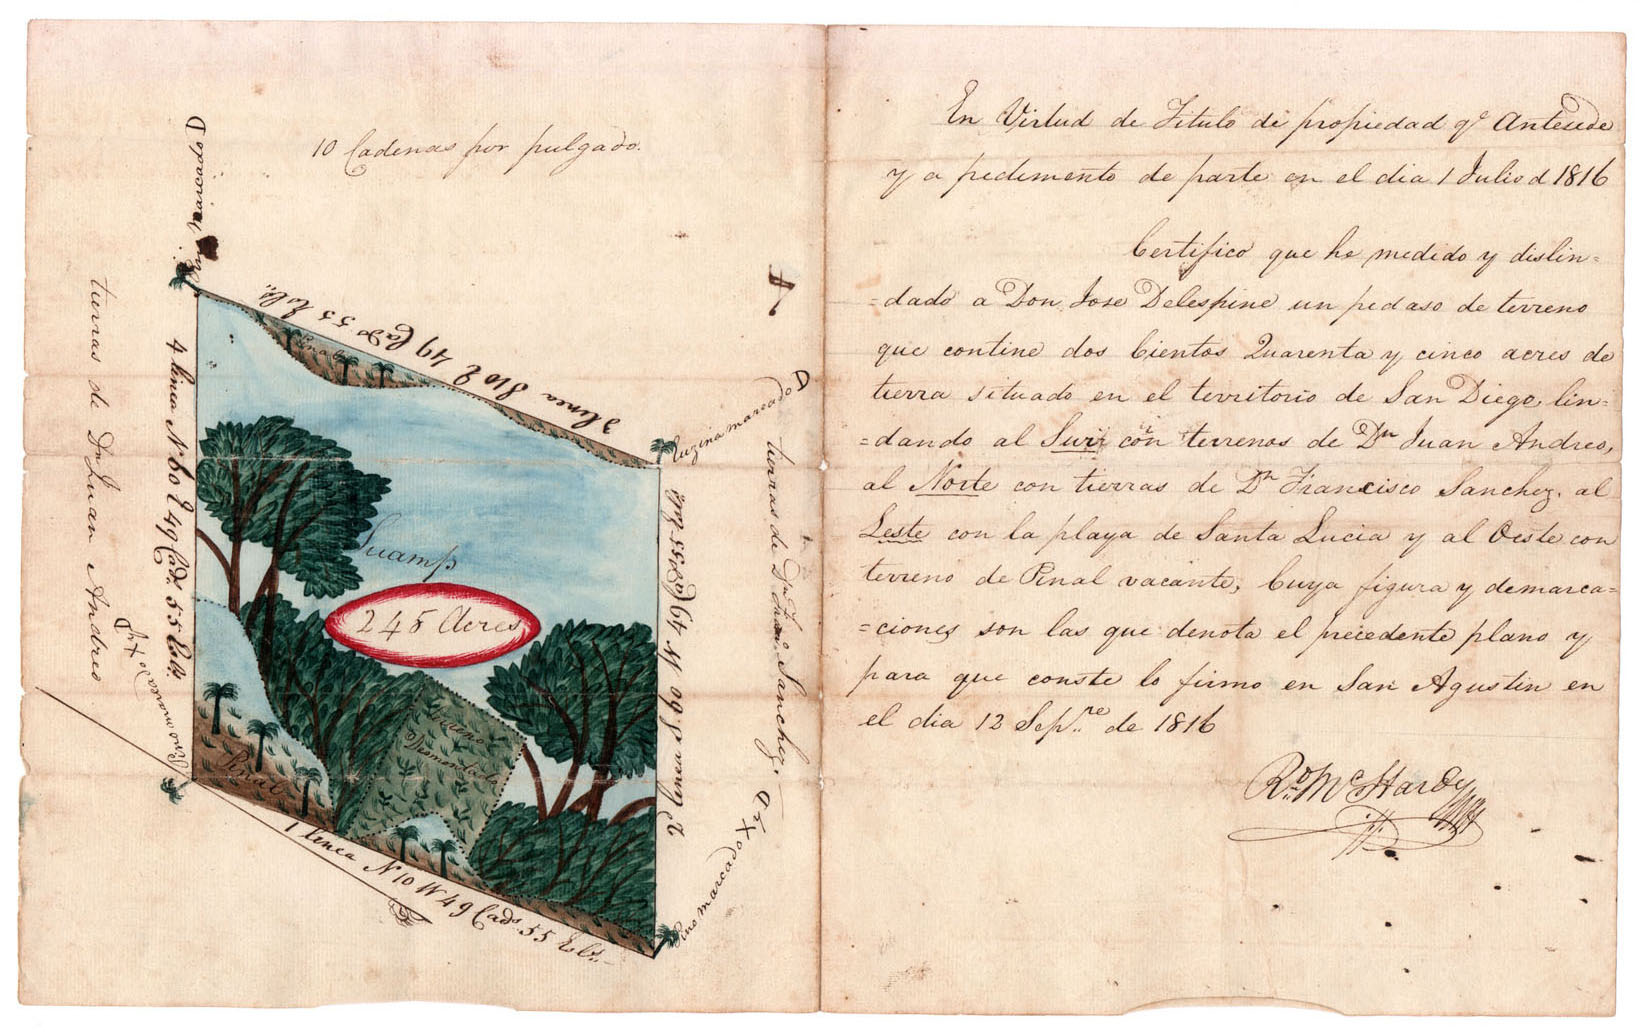 10 Cadenas por pulgado.
Pino marcado
3 linea S 10 E 49 Cad.s 55 Esl.s
Pinal
tierras de Dn Juan Andreo
4 linea N 60 E 49 Cad.s 55 Esl.s
Enzina marcado
tierras de Dn Franc.o Sanchez.
2 linea S 60 W 49 Cad.s 55 Esl.s
Suamp
245 Acres
Terreno
Desmontado
Pinal
Pino marcado
1 linea N 10 W 49 Cad.s 55 Esl.s
Pino marcado
En Virtud de Titulo de propiedad q.e Antesede
y a pedimento de parte en el dia 1 Julio d 1816
Certifico que he medido y deslin=
=dado a Don Jose Delespine un pedaso de terreno
que contine dos Cientos Quarenta y cinco acres de
tierra situado en el territorio de San Diego, lin=
=dando al Sur con terrenos de Dn Juan Andreo,
al Norte con tierras de Dn Francisco Sanchez. al
Leste con la playa de Santa Lucia y al Oeste con
terreno de Pinal vacante, Cuya figura y demarca=
=ciones son las que denota el precedente plano y
para que conste lo firmo en San Agustin en
el dia 12 Sep.re de 1816
Ro. Mc Hardy